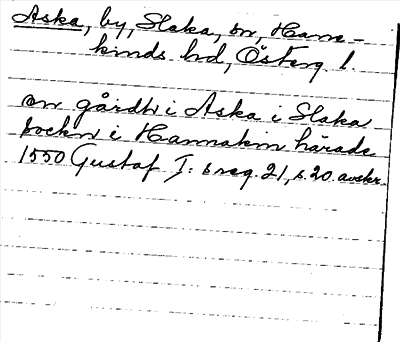 Aska, by, Slaka, sn, Hane-
kinds hd, Österg. l.
en gårdh i Aska i Slaka
sockn i Hannakin härade
1550 Gustaf I:s reg. 21, s. 20. avskr.